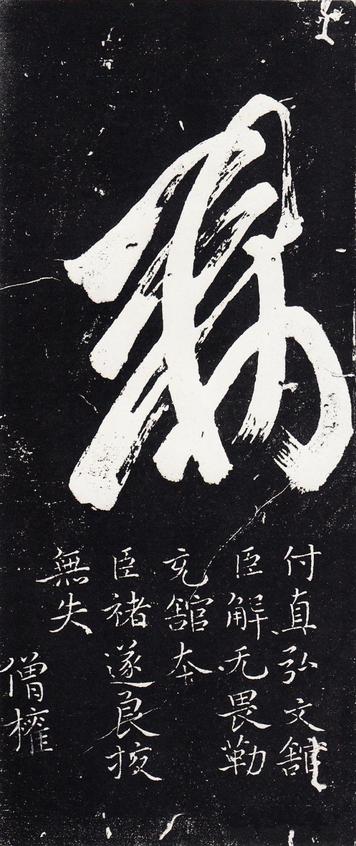 敕
付直弘文舘
臣解无畏勒
充舘夲
臣褚遂良挍
無失
僧權